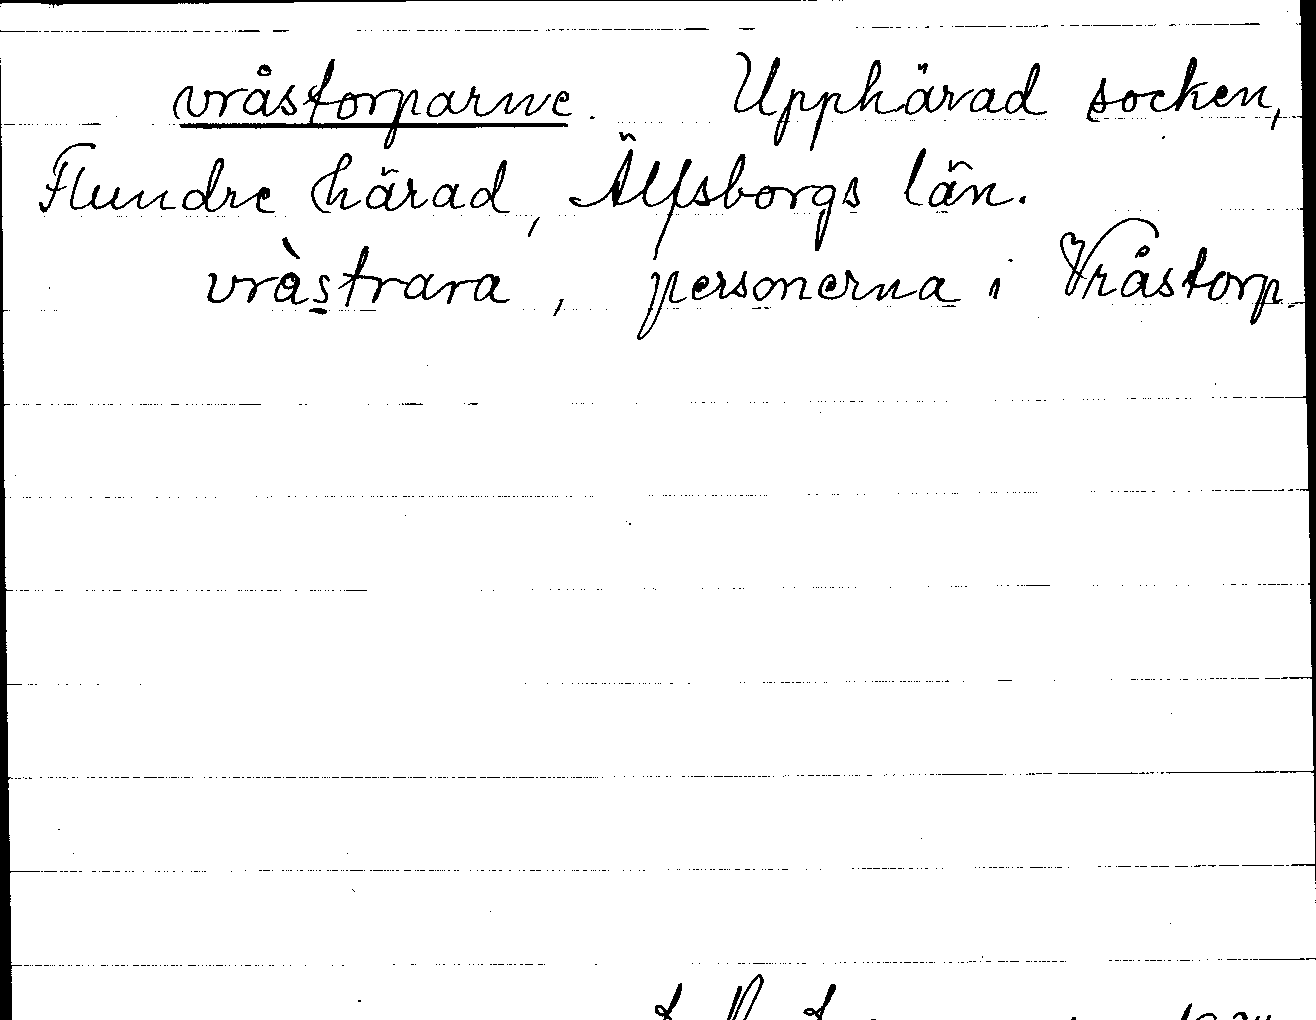 vråstorparne. Upphärad socken,
Flundre härad, Älfsborgs län.
vràstrara, personerna i Vråstorp